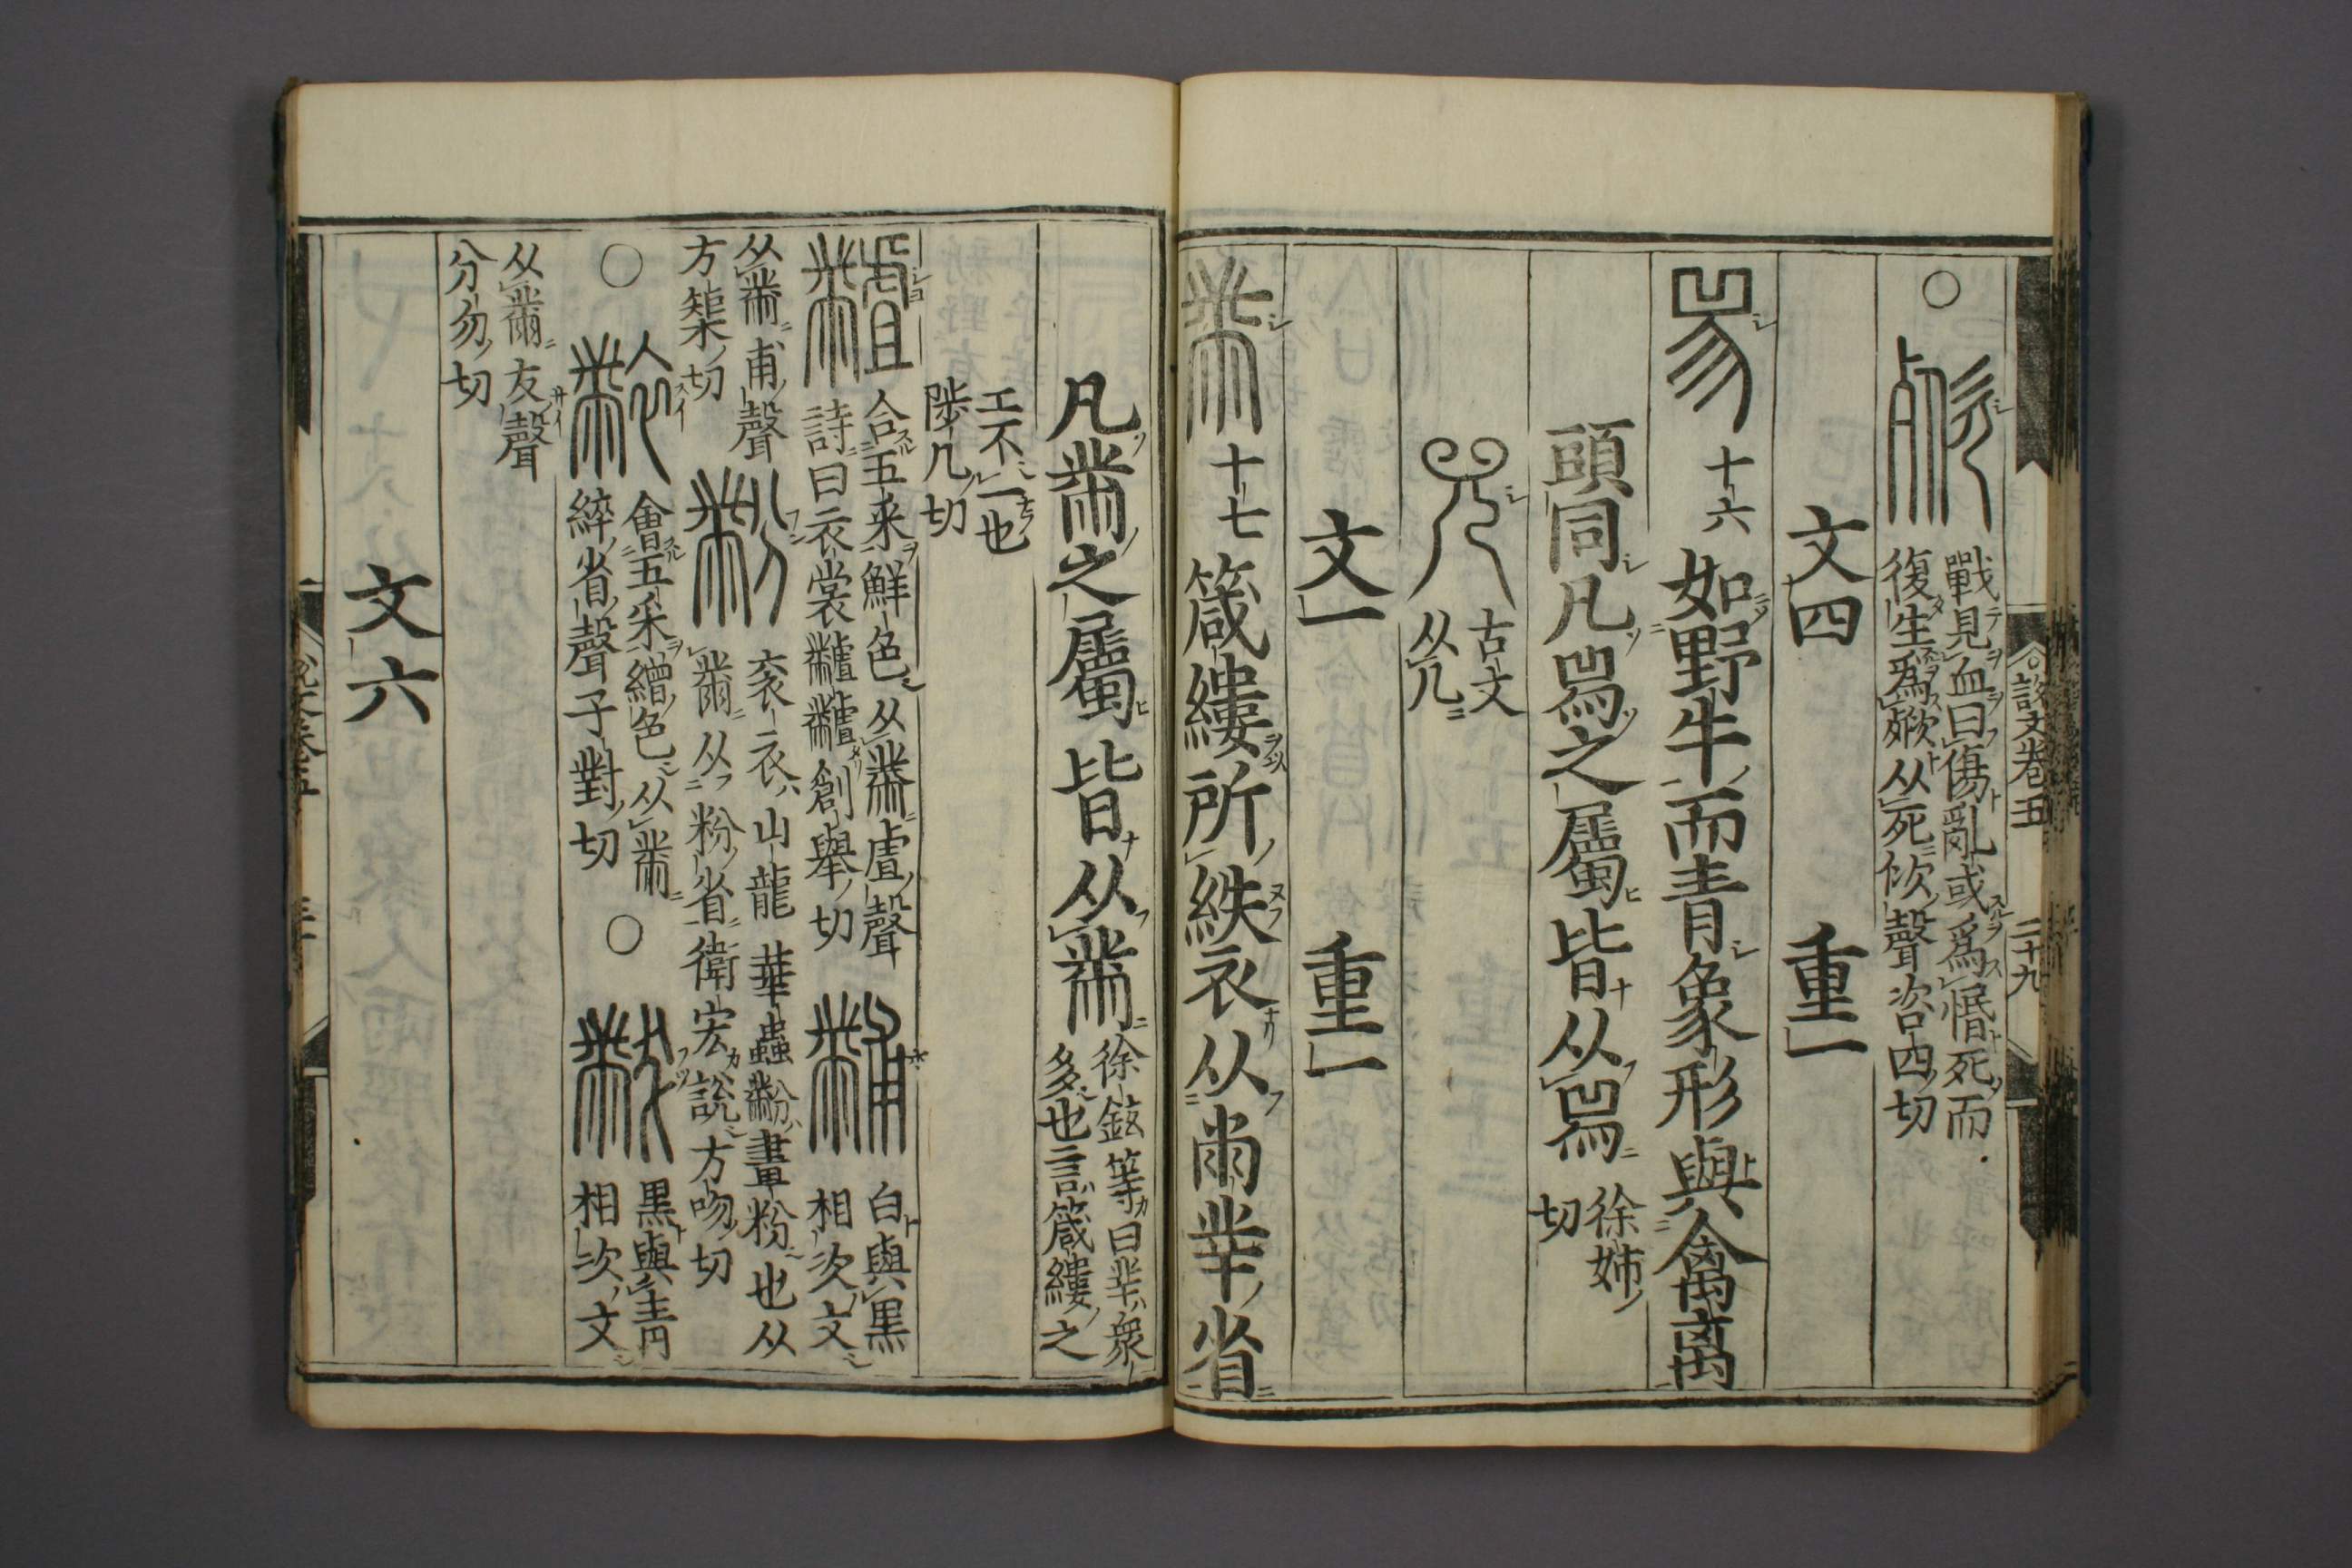 說文卷五 二十九
○
戰見血曰傷亂或爲惛死而
復生爲㱔从死㳄聲咨四切
文四 重一
十六 如野牛而青象形與禽离
頭同凡𤉡之屬皆从𤉡 徐姊
切
古文
从儿
文一 重一
黹 十七 箴縷所紩衣从㡀丵省
凡黹之屬皆从黹 徐鉉等曰丵衆
多也言箴縷之
工不一也
陟几切
合五采鮮色从黹虘聲
詩曰衣裳䵘䵘創舉切
黼 白與黑
相次文
从黹甫聲
方榘切
黺 衮衣山龍華蟲黺畫粉也从
黹从粉省衛宏說方吻切
○
會五采繒色从黹
綷省聲子對切
○
黻 黑與青
相次文
从黹犮聲
分勿切
文六